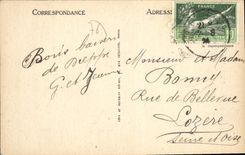 CORRESPONDANCE
ADRESSE
Bons baisers
de Dieppe
G. et Jeanne
Monsieur et Madame
Bonny
Rue de Bellevue
Lozère
Seine et Oise